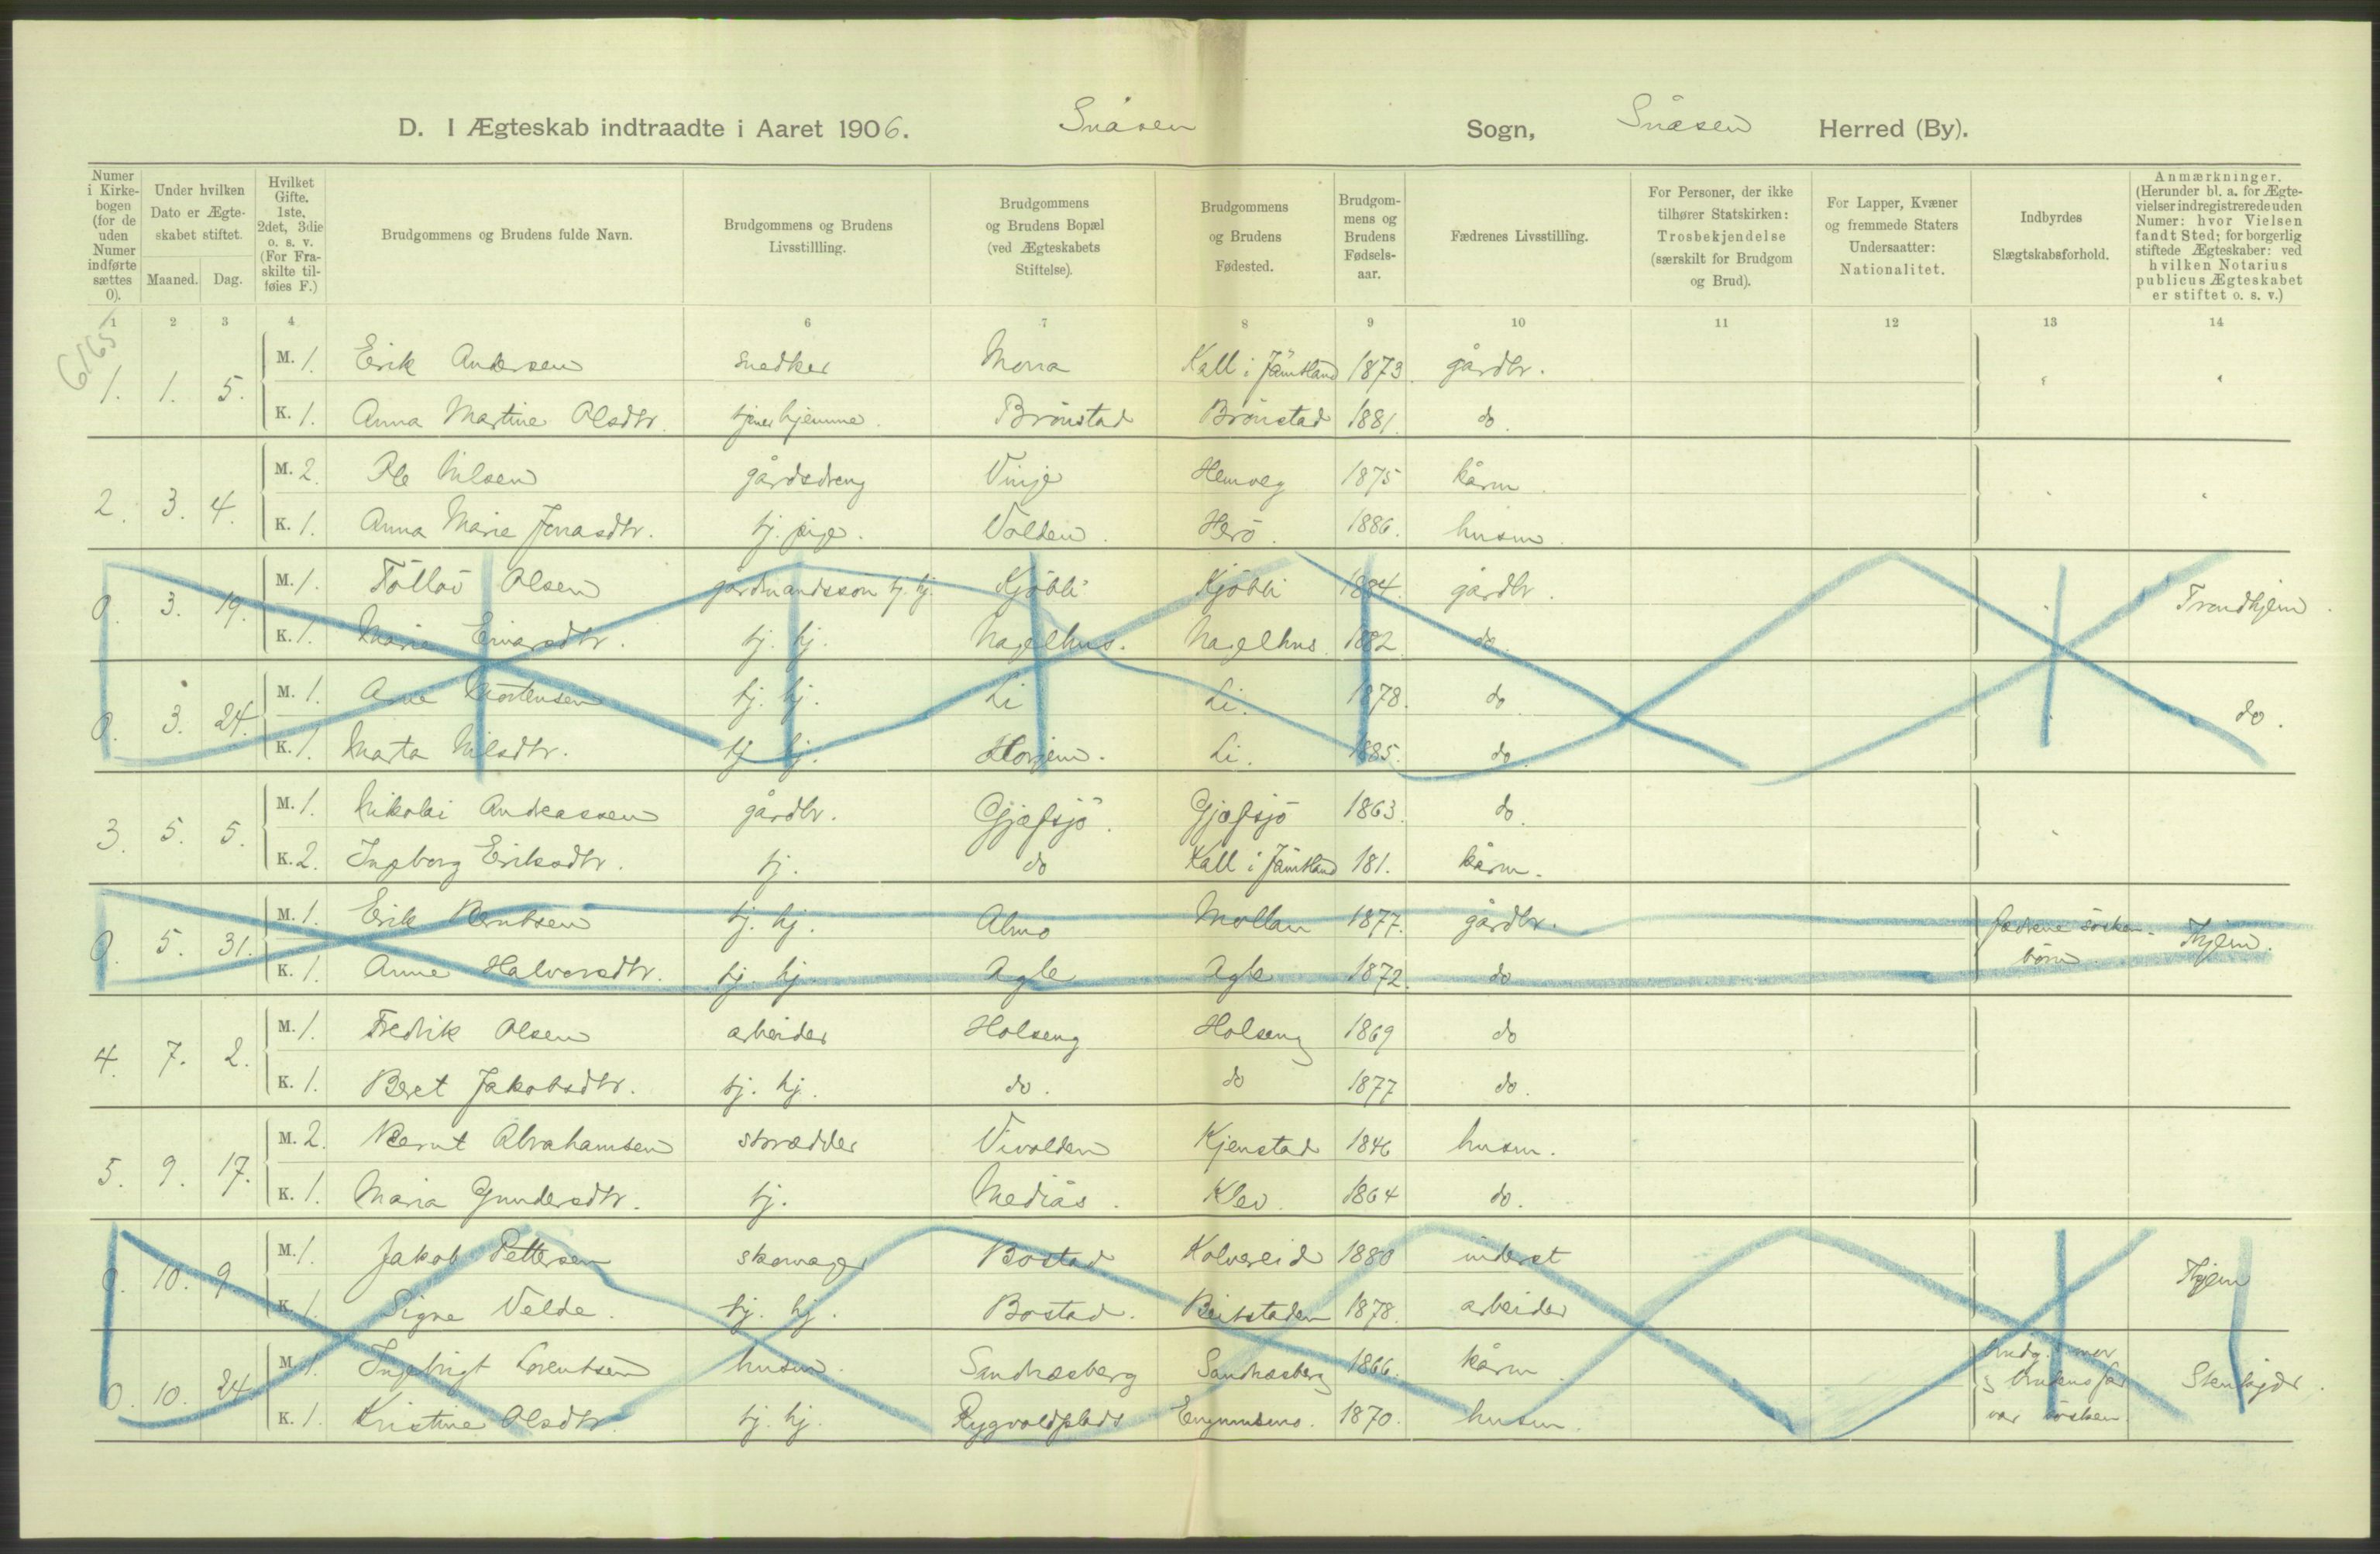 D. I Ægteskab indtraadte i Aaret 1906. Snåsen Sogn, Snåsen Herred (By).
Numer i Kirkebogen (for de uden Numer indførte sættes 0).
Under hvilken Dato er Ægteskabet stiftet.
Maaned. Dag.
Hvilket Gifte. 1ste, 2det, 3die o. s. v. (For Fraskilte tilføies F.)
Brudgommens og Brudens fulde Navn.
Brudgommens og Brudens Livsstillling.
Brudgommens og Brudens Bopæl (ved Ægteskabets Stiftelse).
Brudgommens og Brudens Fødested.
Brudgommens og Brudens Fødselsaar.
Fædrenes Livsstilling.
For Personer, der ikke tilhører Statskirken: Trosbekjendelse (særskilt for Brudgom og Brud).
For Lapper, Kvæner og fremmede Staters Undersaatter: Nationalitet.
Indbyrdes Slægtskabsforhold.
Anmærkninger. (Herunder bl. a. for Ægtevielser indregistrerede uden Numer: hvor Vielsen fandt Sted; for borgerlig stiftede Ægteskaber: ved hvilken Notarius publicus Ægteskabet er stiftet o. s. v.)
1 2 3 4 6 7 8 9 10 11 12 13 14
6165
1. 1. 5. M. 1. Erik Andersen snedker Mona Kall i Jämtland 1873. gårdbr.
K. 1. Anna Martine Olsdtr. hjemme. Brönstad Brönstad 1881. do.
2. 3. 4. M. 2. Ole Nilsen gårdsdreng Vinje 1875 kårm.
K. 1. Anna Marie Jonasdtr. tj. pige. Volden. Herö. 1886. husm.
0. 3. 19. M. 1. Tollov Olsen gårdmandssön tj. hj. Kjöbli Kjöbli 1884. gårdbr. Trondhjem.
K. 1. Marie Einarsdtr. tj. hj. Nagelhus. Nagelhus. 1882. do.
0. 3. 24. M. 1. Arne Mortensen tj. hj. Li Li. 1878. do. do.
K. 1. Marta Nilsdtr. tj. hj. Horjem. Li. 1885. do.
3. 5. 5. M. 1. Nikolai Andreassen gårdbr. Gjæfsjö. Gjæfsjö 1863. do.
K. 2. Ingeborg Eriksdtr. tj. do Kall i Jämtland 181. kårm.
0. 5. 31. M. 1. Erik Berntsen tj. hj. Almo Mollan 1877. gårdbr. fædrene söskenbörn Thjem.
K. 1. Anne Halvorsdtr. tj. hj. Agle Agle 1872. do
4. 7. 2. M. 1. Fredrik Olsen arbeider Holseng Holseng 1869 do
K. 1. Beret Jakobsdtr. tj. hj. do. do 1877 do.
5. 9. 17. M. 2. Bernt Abrahamsen skrædder Vivolden Kjenstad 1846 husm.
K. 1. Maria Gundersdtr. tj. Mediås. Klev. 1864 do.
0. 10. 9 M. 1. Jakob Pettersen skomager Bostad Kolvereid 1880 inderst Thjem
K. 1. Signe Velde. tj. hj. Bostad. Beitstaden 1878. arbeider
0. 10. 24 M. 1. Ingebrigt Lorentsen husm. Sandnæsberg Sandnæsberg 1866. kårm. brudg.s mor
& brudens far Stenkjær.
K. 1. Kristine Olsdtr. tj. hj. Rygvoldplads 1870. husm. var sösken.